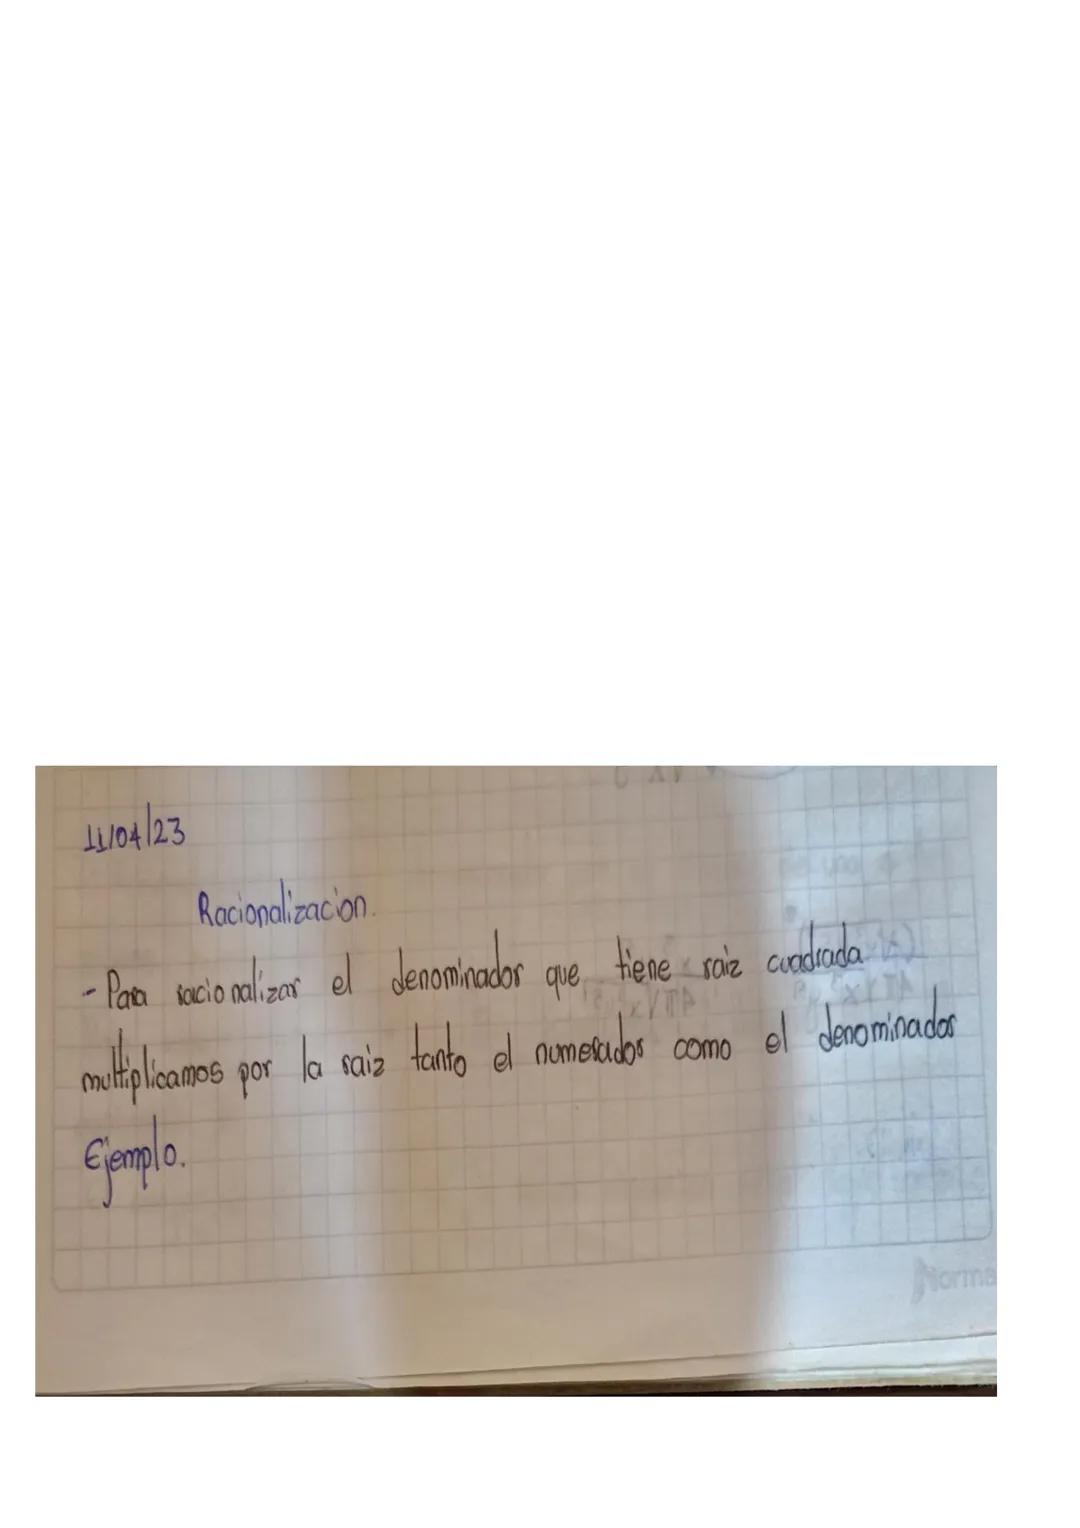 11/04/23
Racionalizacion.
- Para racionalizar el denominador que tiene raiz cuadrada
multiplicamos por la raiz tanto el numerador como el denominador
Ejemplo.
Norma